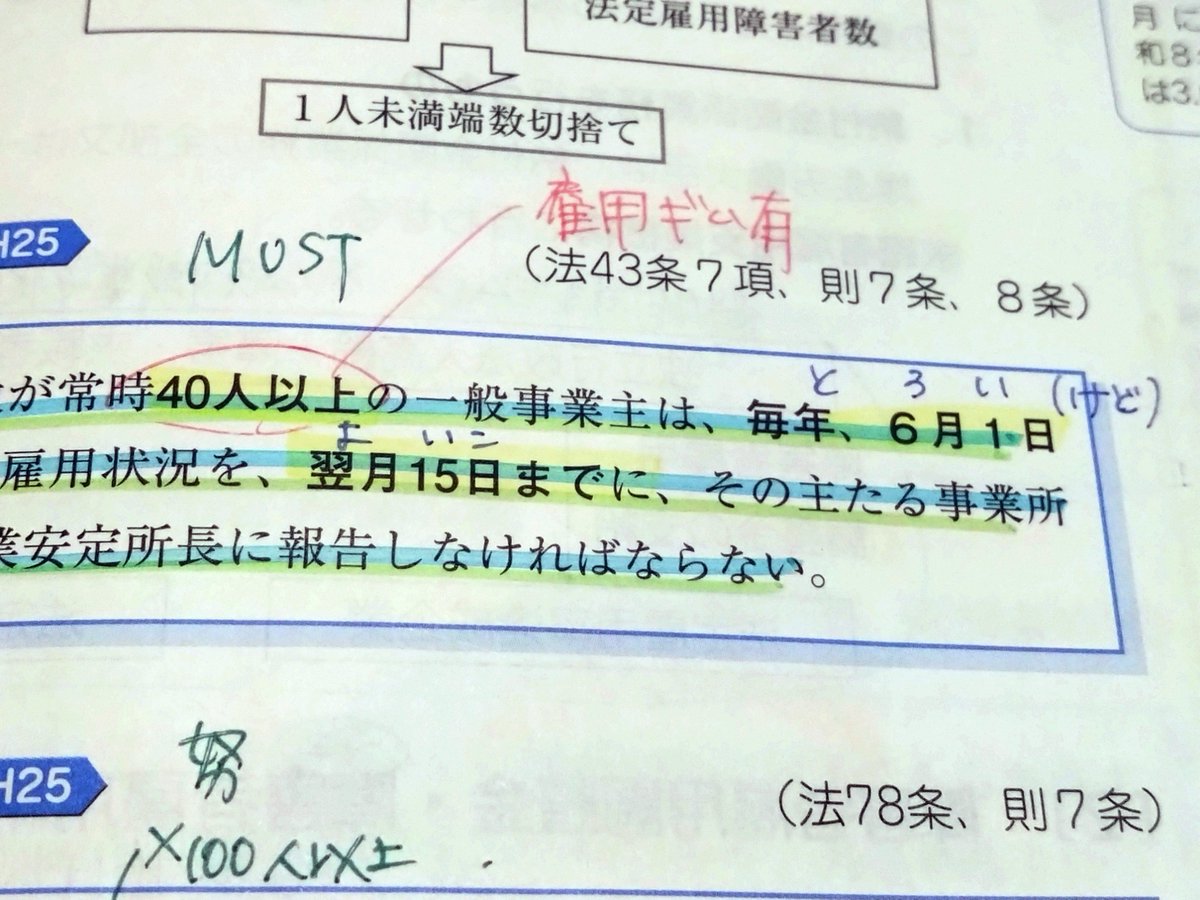 法定雇用障害者数
月に
和8
は3.
1人未満端数切捨て
雇用ギム有
H25
MUST
(法43条7項、則7条、8条)
とろい(けど)
が常時40人以上の一般事業主は、毎年、6月1日
よいこ
雇用状況を、翌月15日までに、その主たる事業所
業安定所長に報告しなければならない。
努
H25
(法78条、則7条)
×100人以上